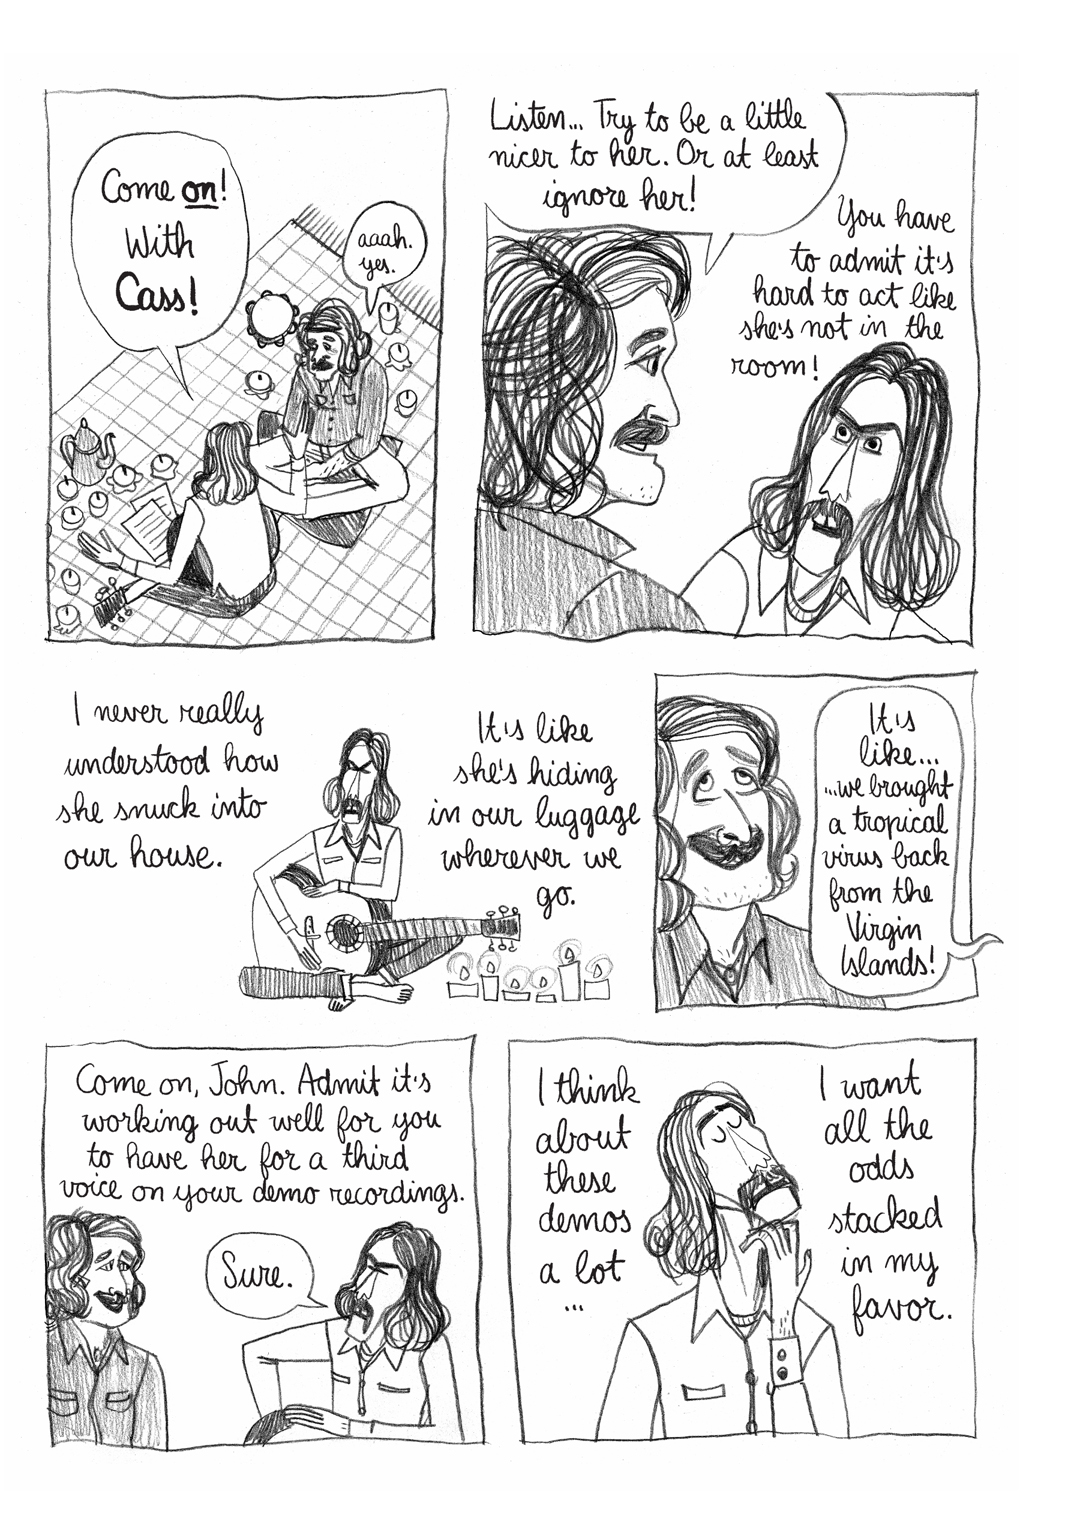 Come on!
With
Cass!
aaah.
yes.
Listen... Try to be a little
nicer to her. Or at least
ignore her!
You have
to admit it's
hard to act like
she's not in the
room!
I never really
understood how
she snuck into
our house.
It's like
she's hiding
in our luggage
wherever we
go.
It's
like...
...we brought
a tropical
virus back
from the
Virgin
Islands!
Come on, John. Admit it's
working out well for you
to have her for a third
voice on your demo recordings.
Sure.
I think
about
these
demos
a lot
...
I want
all the
odds
stacked
in my
favor.